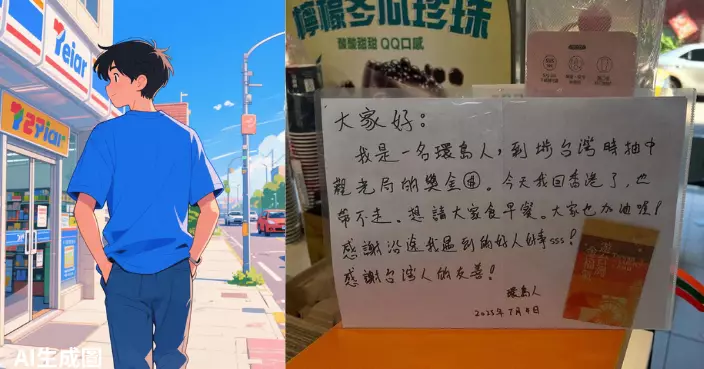 Yeiar
檸檬冬瓜珍珠
酸酸甜甜 QQ口感
大家好：
我是一名環島人，到埗台灣時抽中
觀光局的獎金。今天我回香港了，也
帶不走。想請大家食早餐。大家也加油喔！
感謝沿途我遇到的好人好事sss！
感謝台灣人的友善！
環島人
2025年7月9日
AI生成圖